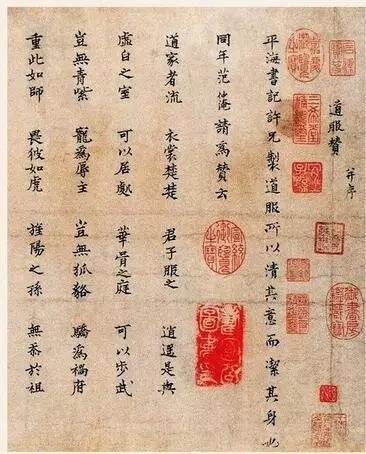 道服贊 并序
平海書記許兄製道服所以清其意而潔其身也
同年范仲淹請為贊云
道家者流 衣裳楚楚 君子服之 逍遙是與
虛白之室 可以居處 華胥之庭 可以步武
豈無青紫 寵為辱主 豈無狐貉 驕為禍府
重此如師 畏彼如虎 旌陽之孫 無忝於祖
三希堂精鑑璽
宜子孫
宣統御覽之寶